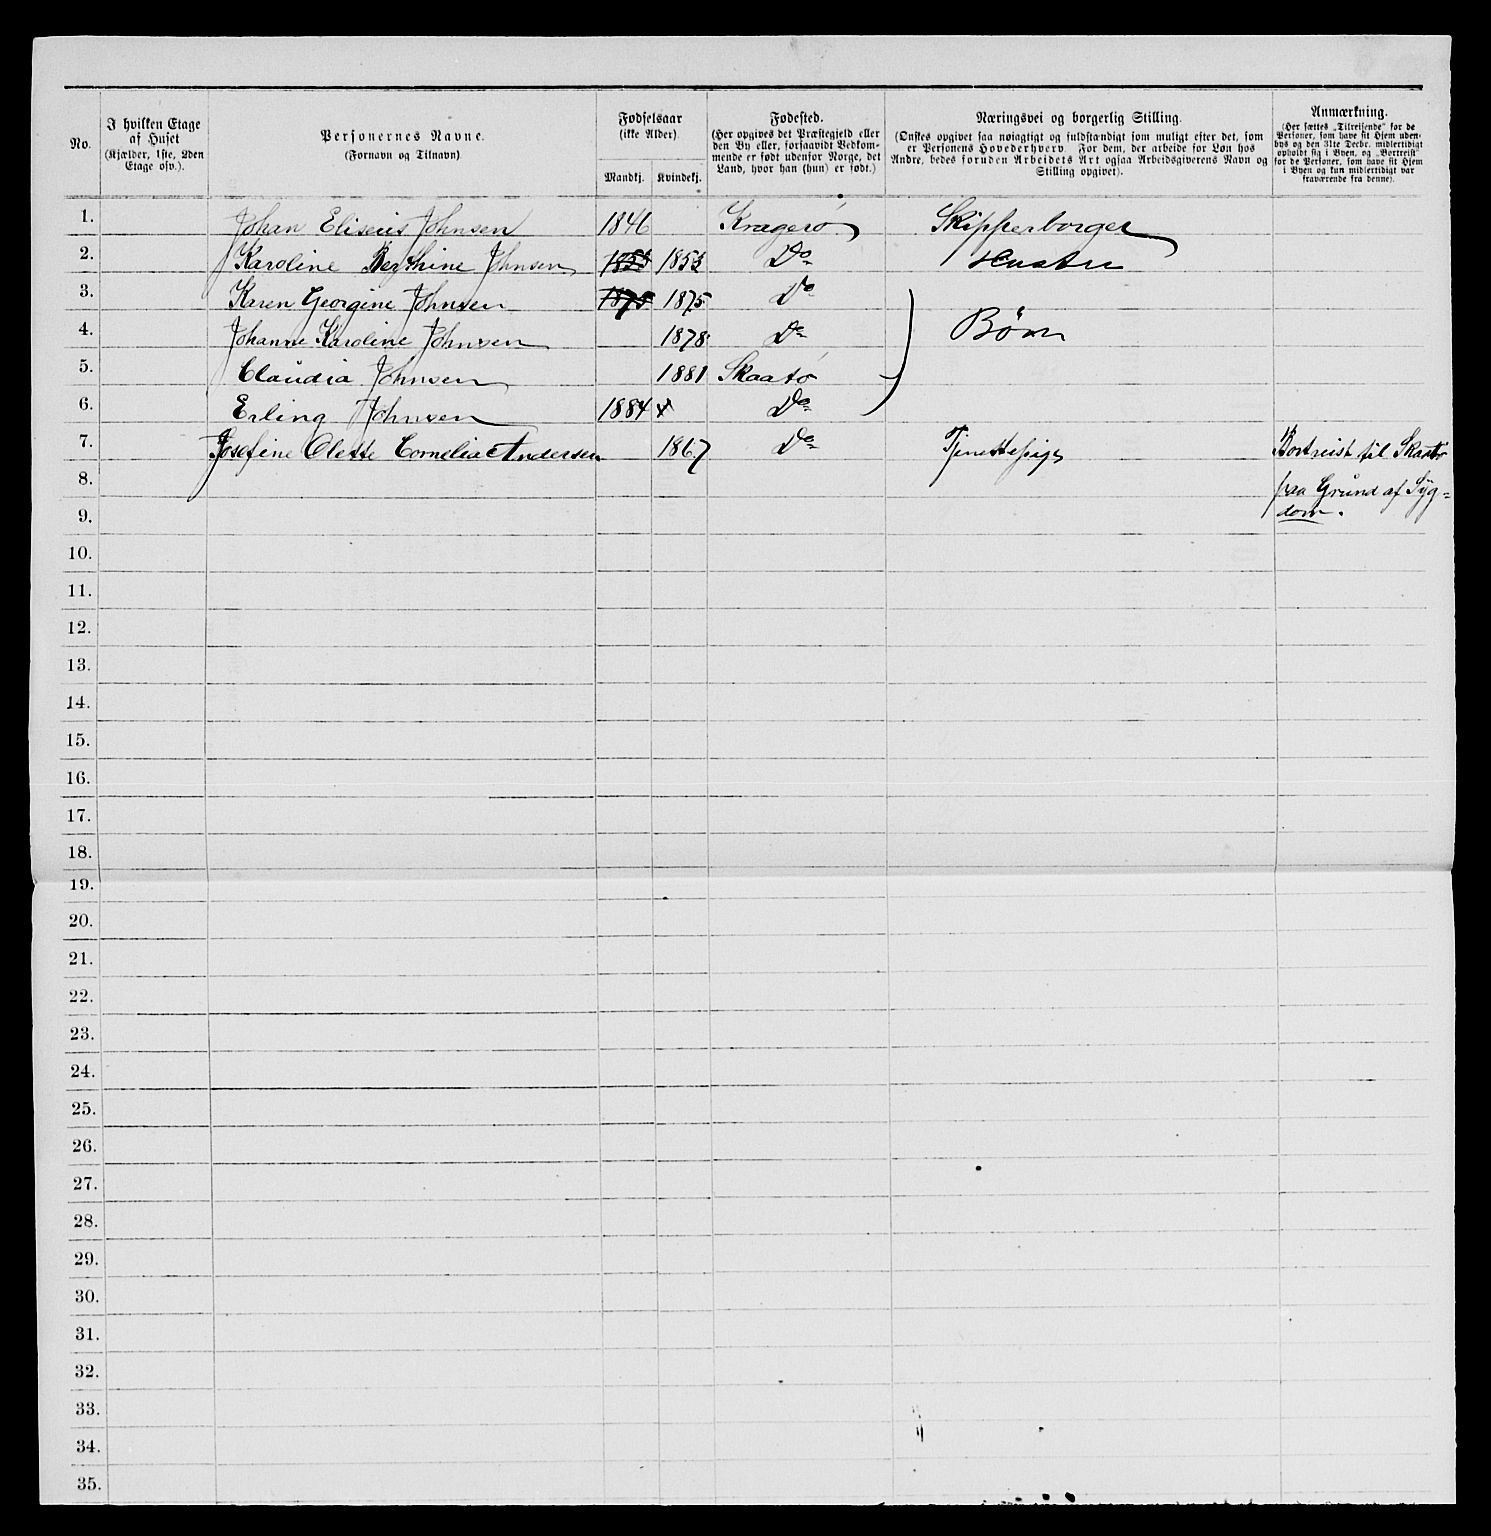 No.
I hvilken Etage
af Huset
(Kjælder, 1ste, 2den
Etage osv.).
Personernes Navne.
(Fornavn og Tilnavn)
Fødselsaar
(ikke Alder).
Mandkj.
Kvindekj.
Fødested.
(Her opgives det Præstegjeld eller
den By eller, forsaavidt Vedkom-
mende er født udenfor Norge, det
Land, hvor han (hun) er født.)
Næringsvei og borgerlig Stilling.
(Ønskes opgivet saa nøiagtigt og fuldstændigt som muligt efter det, som
er Personens Hovederhverv. For dem, der arbeide for Løn hos
Andre, bedes foruden Arbeidets Art ogsaa Arbeidsgiverens Navn og
Stilling opgivet).
Anmærkning.
(Her sættes „Tilreisende“ for de
Personer, som have sit Hjem uden-
bys og den 31te Decbr. midlertidigt
opholdt sig i Byen, og „Bortreist“
for de Personer, som have sit Hjem
i Byen og kun midlertidigt var
fraværende fra denne).
1. Johan Eliseus Johnsen 1846 Kragerø Skipperborger
2. Karoline Berthine Johnsen 1853 1853 Do Hustru
3. Karen Georgine Johnsen 1875 1875 Do
4. Johanne Karoline Johnsen 1878 Do Børn
5. Claudia Johnsen 1881 Skaatø
6. Erling Johnsen 1884 x Do
7. Josefine Olette Cornelia Andersen 1867 Do Tjenestepige Bortreist til Skaatø
8. paa Grund af Syg=
9. dom.
10.
11.
12.
13.
14.
15.
16.
17.
18.
19.
20.
21.
22.
23.
24.
25.
26.
27.
28.
29.
30.
31.
32.
33.
34.
35.